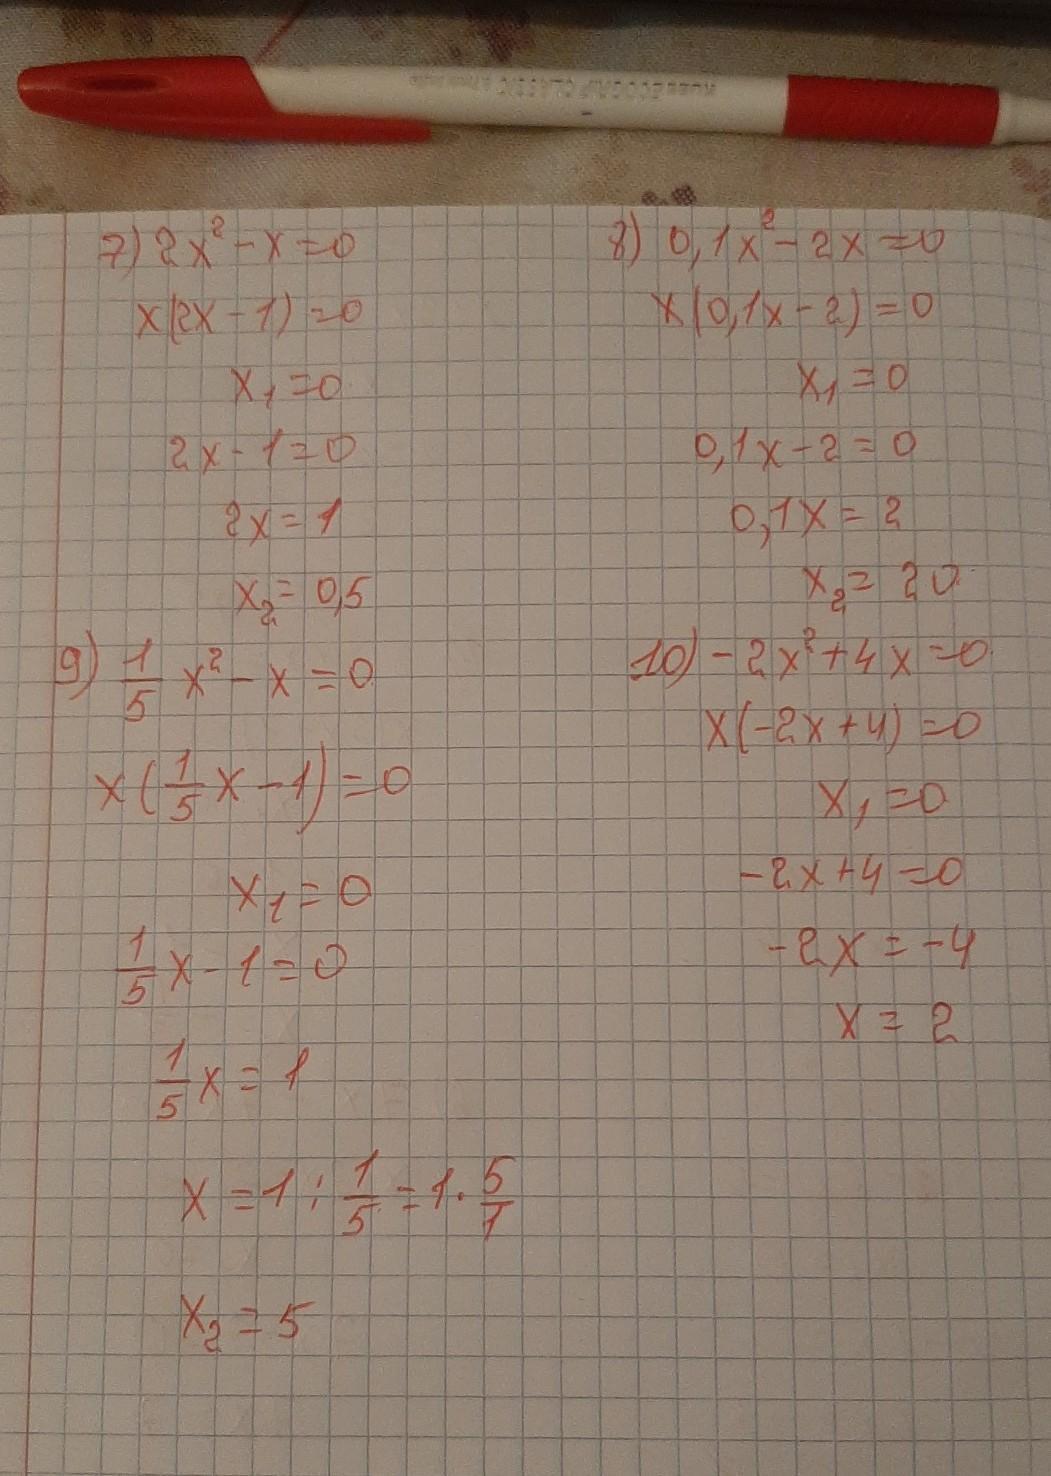 7) 2x² - x = 0
x(2x - 1) = 0
x₁ = 0
2x - 1 = 0
2x = 1
x₂ = 0,5
8) 0,1x² - 2x = 0
x(0,1x - 2) = 0
x₁ = 0
0,1x - 2 = 0
0,1x = 2
x₂ = 20
9) 1/5 x² - x = 0
x(1/5 x - 1) = 0
x₁ = 0
1/5 x - 1 = 0
1/5 x = 1
x = 1 : 1/5 = 1 · 5/1
x₂ = 5
10) -2x² + 4x = 0
x(-2x + 4) = 0
x₁ = 0
-2x + 4 = 0
-2x = -4
x = 2